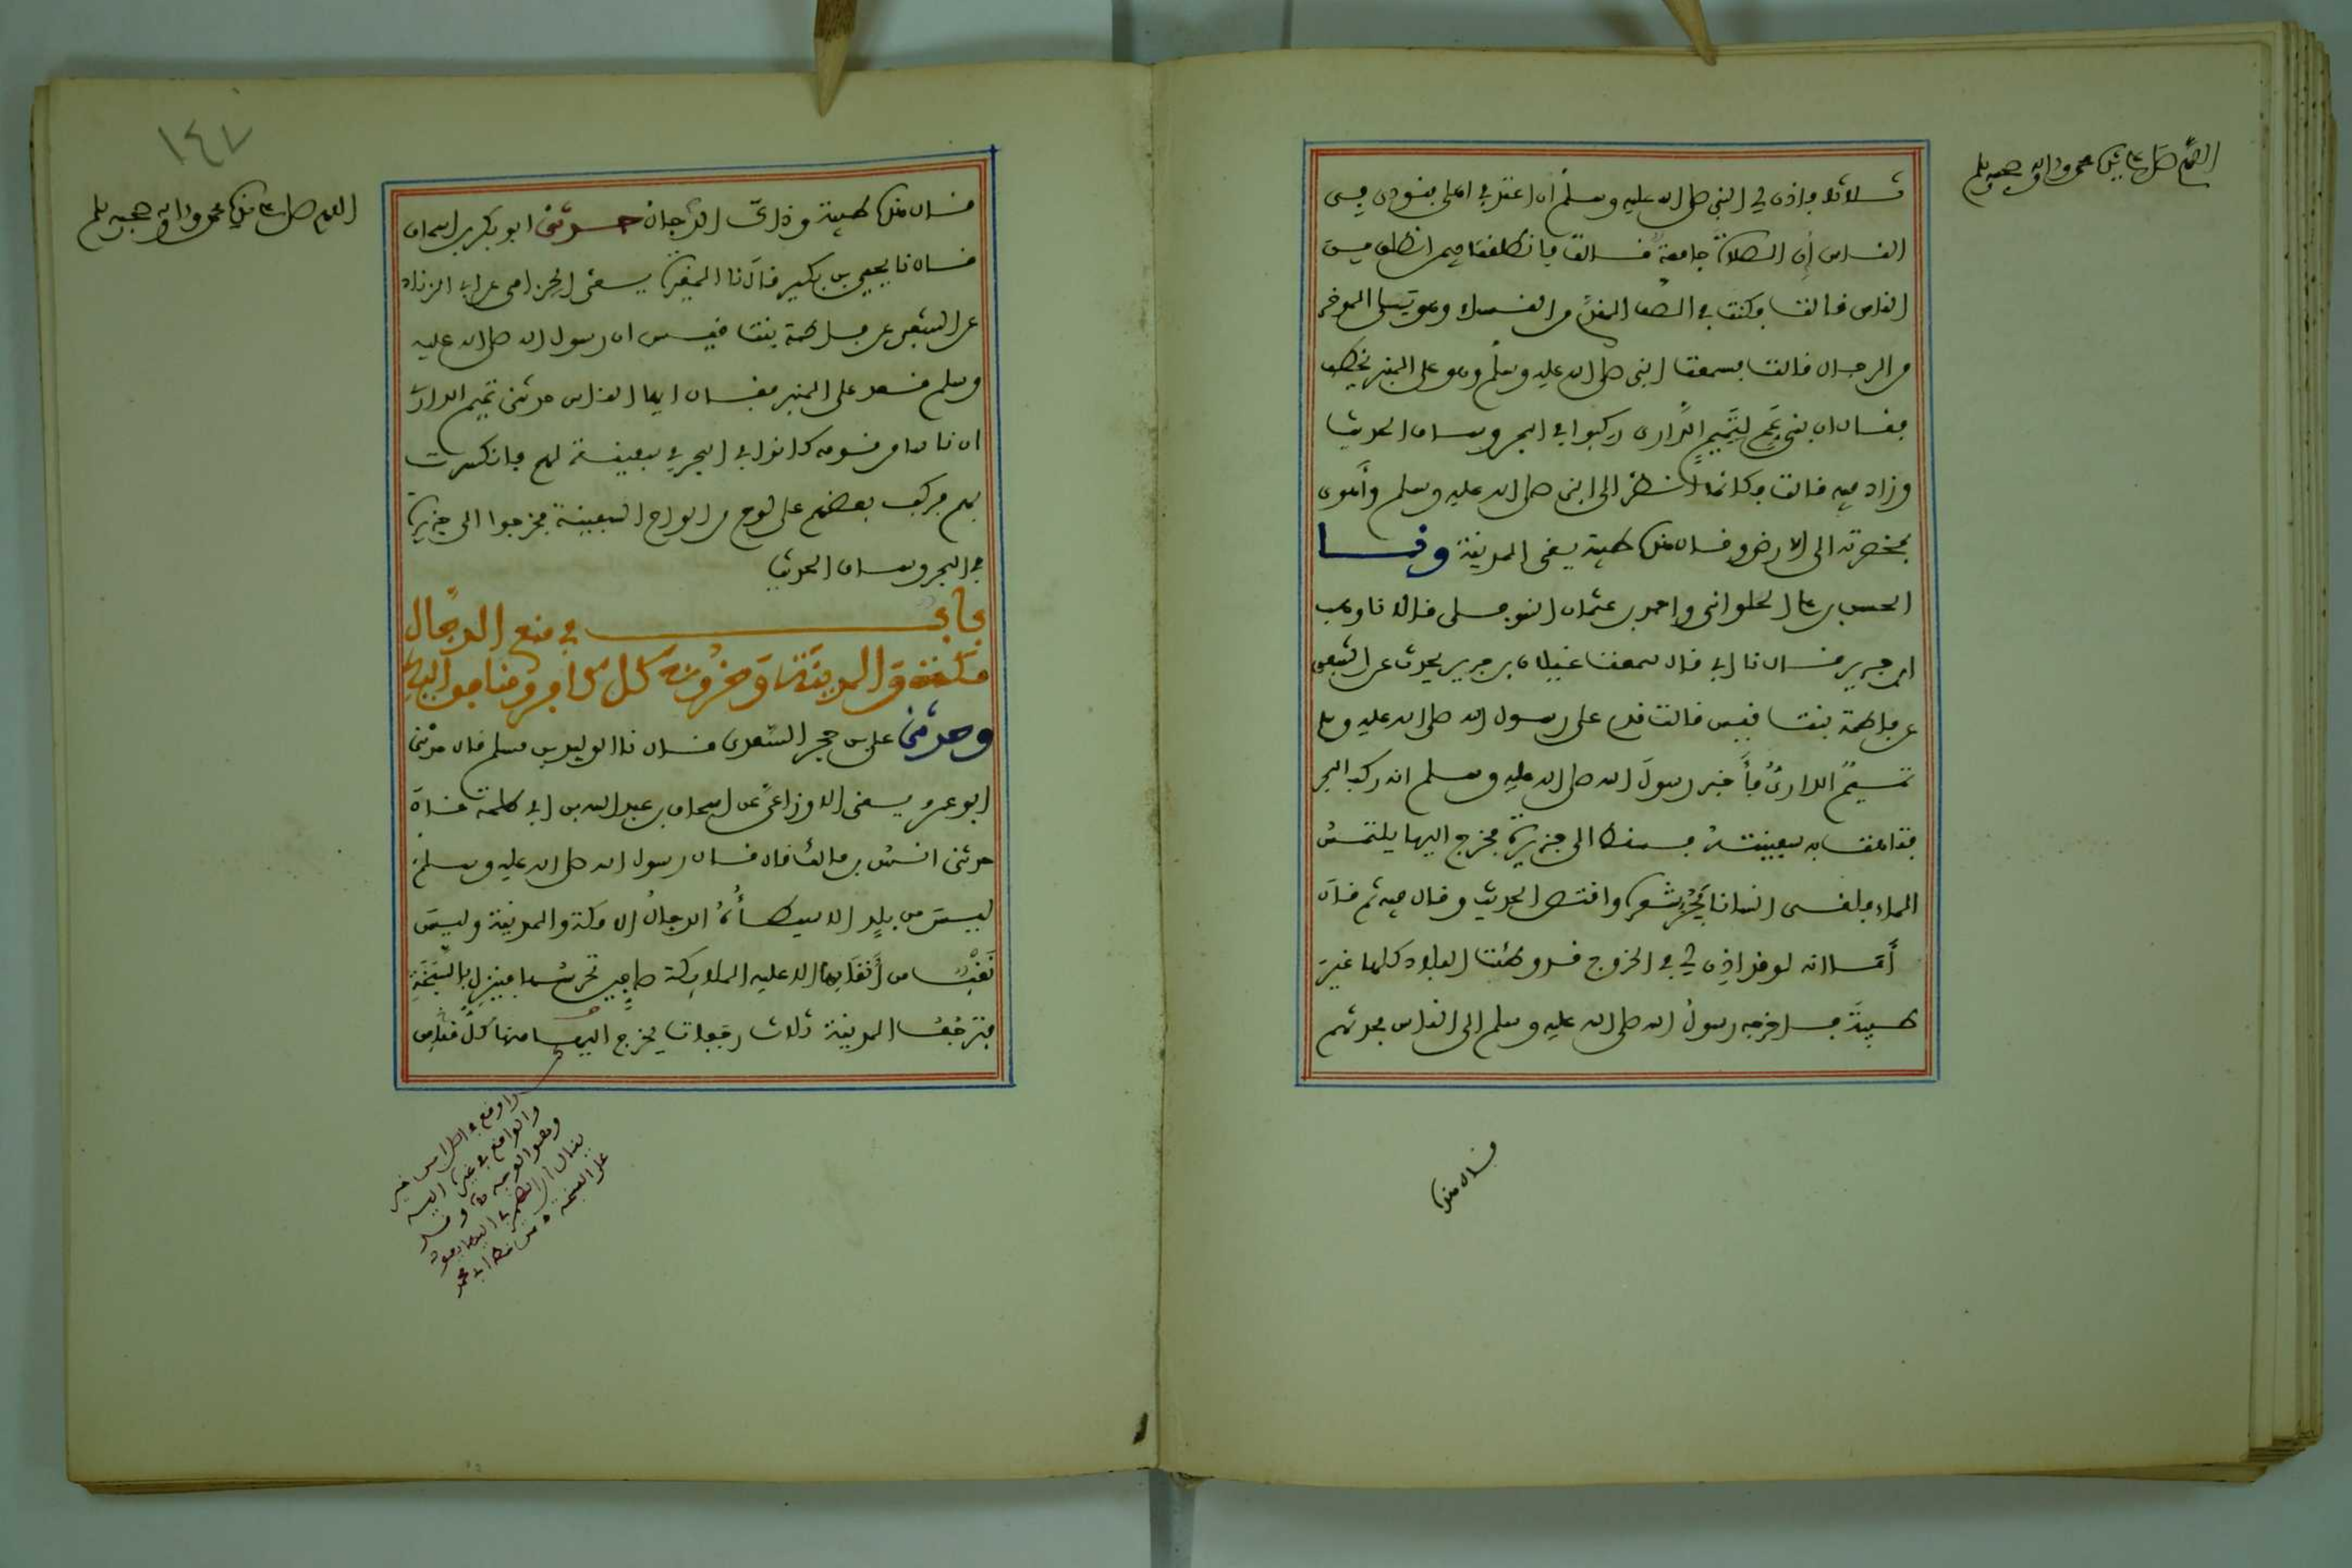 اللهم صل على نبيك محمد وآله وصحبه وسلم
ثلاثا فأذن لي النبي صلى الله عليه وسلم أن اعتد في اهلي فنودي في
الناس إن الصلاة جامعة قالت فانطلقت فيمن انطلق من
الناس قالت فكنت في الصف المقدم من النساء وهو يلي الموخر
من الرجال قالت فسمعت النبي صلى الله عليه وسلم وهو على المنبر يخطب
فقال ان بني عم لتميم الداري ركبوا في البحر وساق الحديث
وزاد فيه قالت فكأنما انظر الى النبي صلى الله عليه وسلم وأهوى
بمخصرته الى الارض وقال هذه طيبة يعني المدينة ونا
الحسن بن علي الحلواني واحمد بن عثمان النوفلي قالا نا وهب
ابن جرير قال نا ابي قال سمعت غيلان بن جرير يحدث عن الشعبي
عن فاطمة بنت قيس قالت قدم على رسول الله صلى الله عليه وسلم
تميم الداري فأخبر رسول الله صلى الله عليه وسلم انه ركب البحر
فتاهت به سفينته فسقط الى جزيرة فخرج اليها يلتمس
الماء فلقي انسانا يجر شعره واقتص الحديث وقال فيه ثم قال
أما انه لو قد اذن لي في الخروج قد وطئت البلاد كلها غير
طيبة فاخرجه رسول الله صلى الله عليه وسلم الى الناس فحدثهم
قال هذه
١٤٧
اللهم صل على نبيك محمد وآله وصحبه وسلم
قال هذه طيبة وذاك الدجال حدثني ابو بكر بن اسحاق
قال نا يحيى بن بكير قال نا المغيرة يعني الحزامي عن ابي الزناد
عن الشعبي عن فاطمة بنت قيس ان رسول الله صلى الله عليه
وسلم قعد على المنبر فقال ايها الناس حدثني تميم الداري
ان ناسا من قومه كانوا في البحر في سفينة لهم فانكسرت
بهم فركب بعضهم على لوح من الواح السفينة فخرجوا الى جزيرة
في البحر وساق الحديث
باب في منع الدجال
مكة والمدينة وخروج كل كافر ومنافق اليه
وحدثني علي بن حجر السعدي قال نا الوليد بن مسلم قال حدثني
ابو عمرو يعني الاوزاعي عن اسحاق بن عبد الله بن ابي طلحة قال
حدثني انس بن مالك قال قال رسول الله صلى الله عليه وسلم
ليس من بلد الا سيطأه الدجال الا مكة والمدينة وليس
نقب من أنقابها الا عليه الملائكة صافين تحرسها فينزل بالسبخة
فترجف المدينة ثلاث رجفات يخرج اليه منها كل منافق
وقع في اصل
والواقع في غيره اليه
وهو الوجه وقد
يقال ان الضمير في اليها يعود
على السبخة من خط